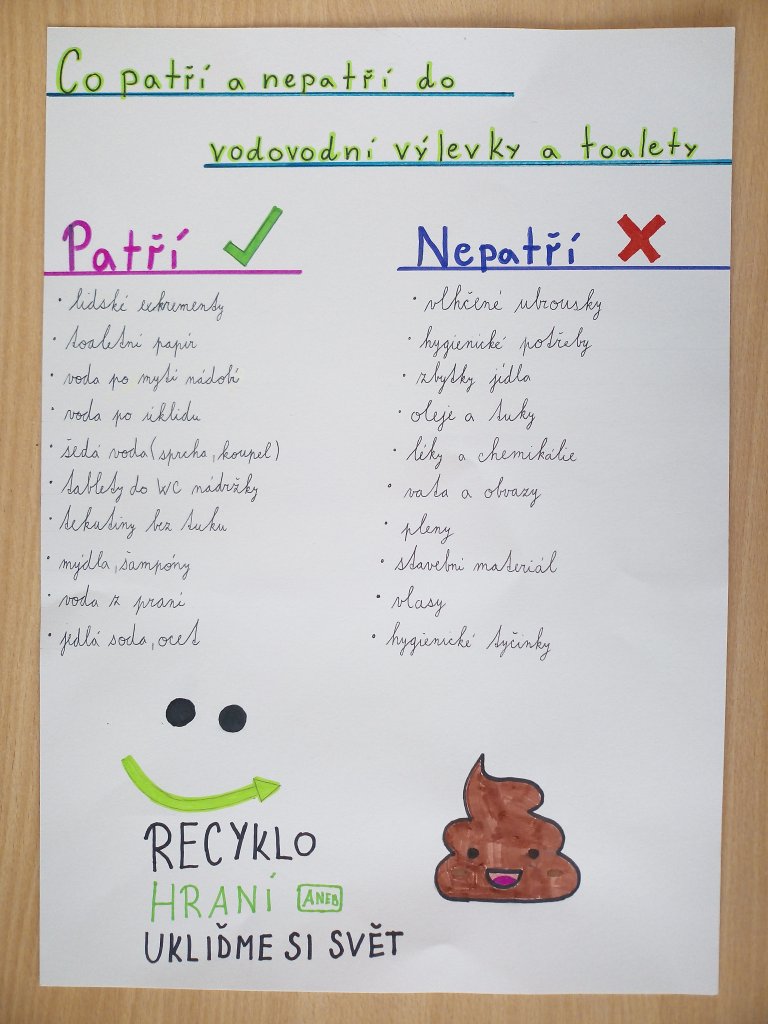 Co patří a nepatří do
vodovodní výlevky a toalety
Patří
• lidské exkrementy
• toaletní papír
• voda po mytí nádobí
• voda po úklidu
• šedá voda (sprcha, koupel)
• tablety do WC nádržky
• tekutiny bez tuku
• mýdla, šampóny
• voda z praní
• jedlá soda, ocet
Nepatří
• vlhčené ubrousky
• hygienické potřeby
• zbytky jídla
• oleje a tuky
• léky a chemikálie
• vata a obvazy
• pleny
• stavební materiál
• vlasy
• hygienické tyčinky
RECYKLO
HRANÍ ANEB
UKLIĎME SI SVĚT